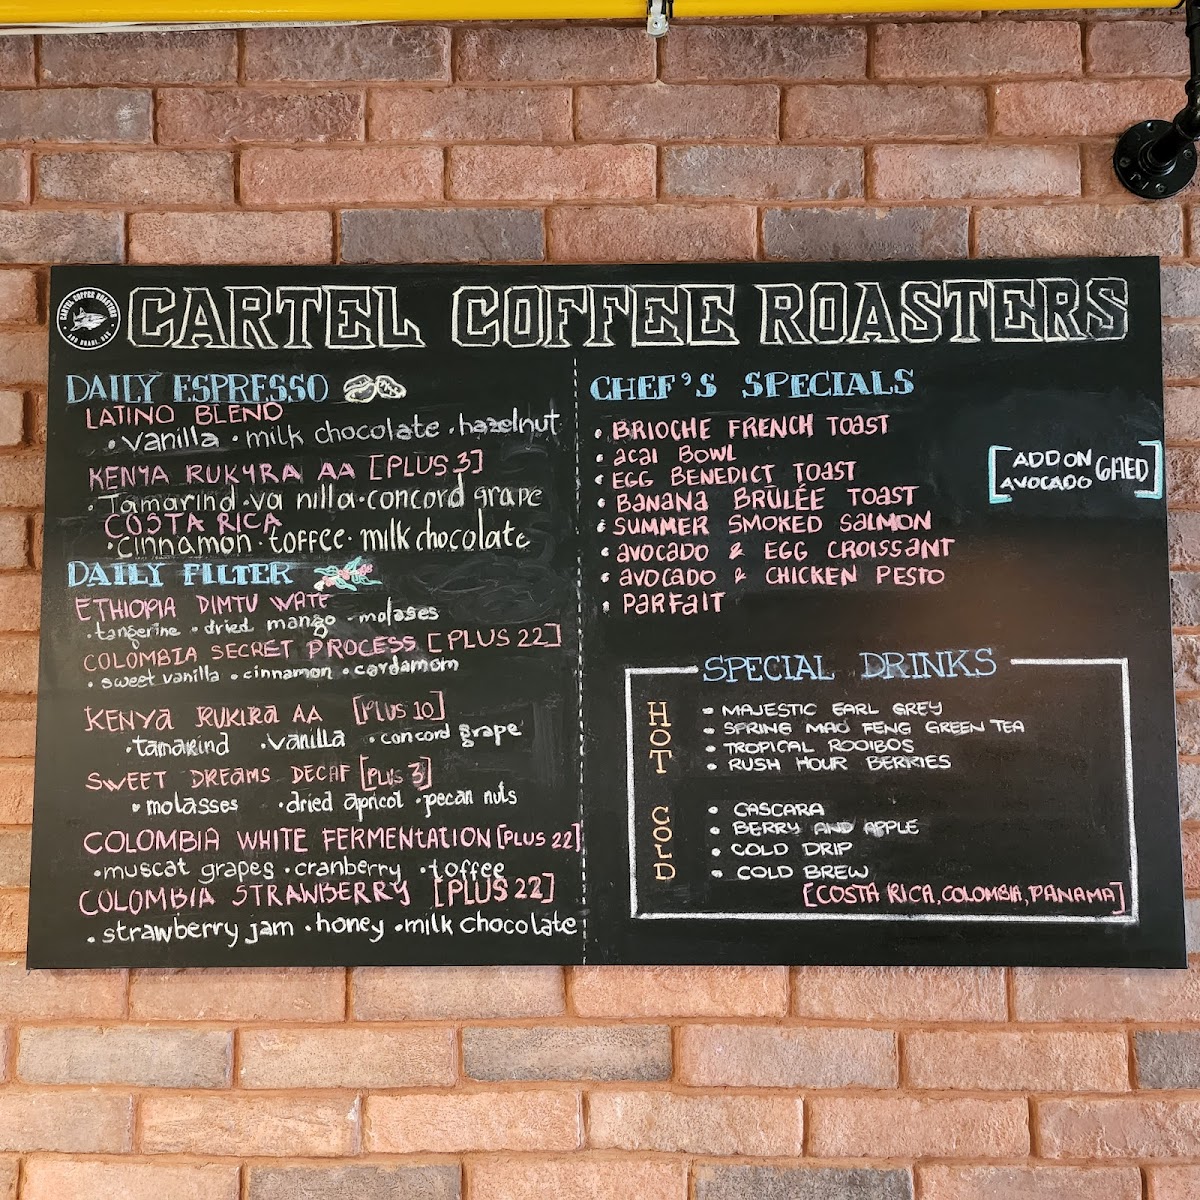 CARTEL COFFEE ROASTERS
CARTEL COFFEE ROASTERS
DAILY ESPRESSO
LATINO BLEND
• vanilla • milk chocolate • hazelnut
KENYA RUKYRA AA [PLUS 3]
• Tamarind • va nilla • concord grape
COSTA RICA
• cinnamon • toffee • milk chocolate
DAILY FILTER
ETHIOPIA DIMTU WATE
• tangerine • dried mango • molases
COLOMBIA SECRET PROCESS [PLUS 22]
• sweet vanilla • cinnamon • cardamom
KENYA RUKIRA AA [PLUS 10]
• tamarind • vanilla • concord grape
SWEET DREAMS DECAF [PLUS 3]
• molasses • dried apricot • pecan nuts
COLOMBIA WHITE FERMENTATION [PLUS 22]
• muscat grapes • cranberry • toffee
COLOMBIA STRAWBERRY [PLUS 22]
• strawberry jam • honey • milk chocolate
CHEF'S SPECIALS
• BRIOCHE FRENCH TOAST
• ACAI BOWL
• EGG BENEDICT TOAST
• BANANA BRÛLÉE TOAST
• SUMMER SMOKED SALMON
• AVOCADO & EGG CROISSANT
• AVOCADO & CHICKEN PESTO
• PARFAIT
[ADD ON AVOCADO 6AED]
SPECIAL DRINKS
HOT
• MAJESTIC EARL GREY
• SPRING MAO FENG GREEN TEA
• TROPICAL ROOIBOS
• RUSH HOUR BERRIES
COLD
• CASCARA
• BERRY AND APPLE
• COLD DRIP
• COLD BREW
[COSTA RICA, COLOMBIA, PANAMA]